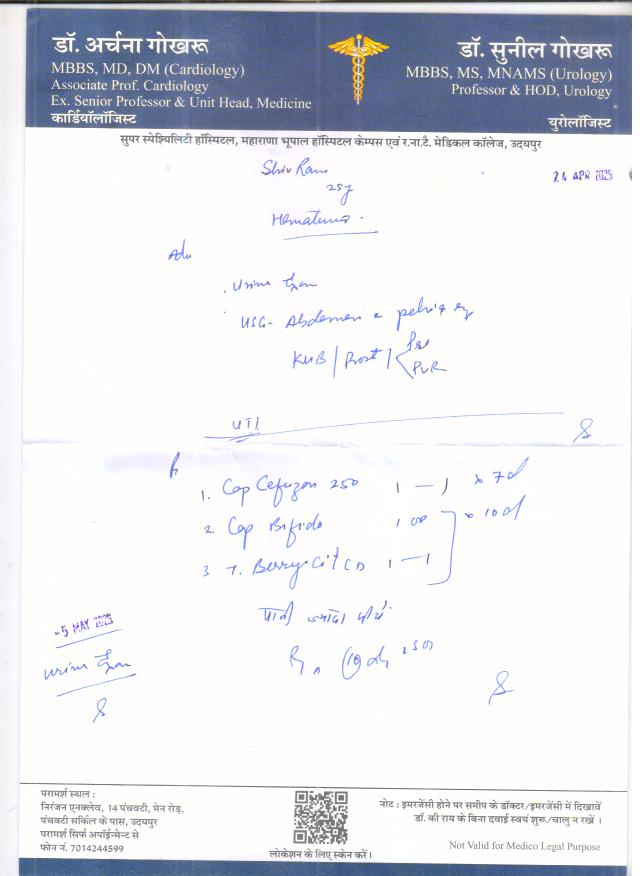 डॉ. अर्चना गोखरू
MBBS, MD, DM (Cardiology)
Associate Prof. Cardiology
Ex. Senior Professor & Unit Head, Medicine
कार्डियॉलॉजिस्ट
डॉ. सुनील गोखरू
MBBS, MS, MNAMS (Urology)
Professor & HOD, Urology
युरोलॉजिस्ट
सुपर स्पेश्यिलिटी हॉस्पिटल, महाराणा भूपाल हॉस्पिटल केम्पस एवं र.ना.टै. मेडिकल कॉलेज, उदयपुर
Shiv Ram
24 APR 2025
25y
Hematuria
Adv
Urine Exam
USG- Abdomen & pelvis
KUB / Prost / Pre
PVR
UTI
1. Cap Cefuzon 250 1 — 1 x 7d
2. Cap Bifido 1 OD x 10d
3 T. Berry Cit CD 1 — 1
पानी ज्यादा पीये
-5 MAY 2025
Urine Exam
परामर्श स्थल :
निरंजन एनक्लेव, 14 पंचवटी, मेन रोड़,
पंचवटी सर्किल के पास, उदयपुर
परामर्श सिर्फ अपॉईन्मेन्ट से
फोन नं. 7014244599
लोकेशन के लिए स्केन करें।
नोट : इमरजेंसी होने पर समीप के डॉक्टर/इमरजेंसी में दिखावें
डॉ. की राय के बिना दवाई स्वयं शुरू/चालु न रखें।
Not Valid for Medico Legal Purpose